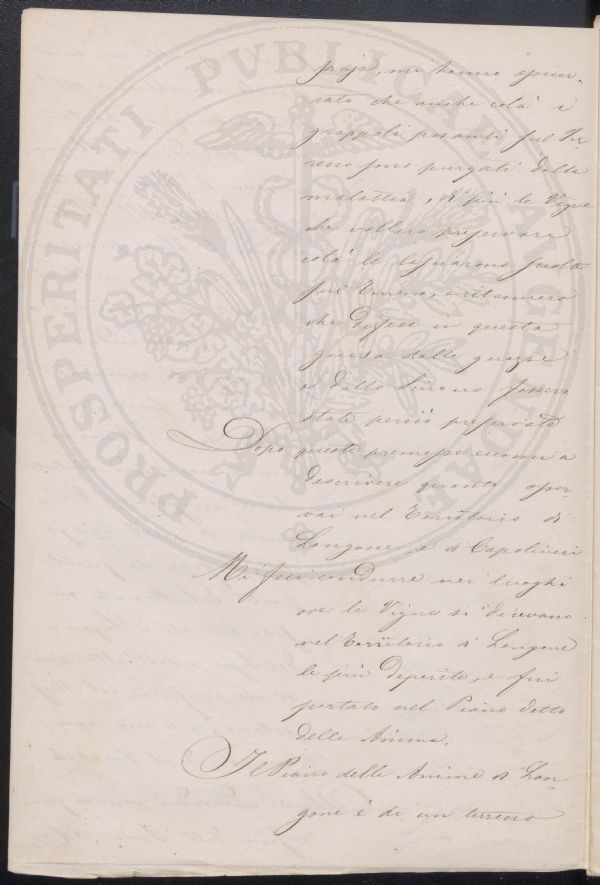 praja, mi hanno assicu-
rato che anche colà i
grappoli posanti sul Ter-
reno sono purgati dalla
malattia, di più le Vigne
che vollero preservare
colà le lasciarono sciolte
sul Terreno, e ritennero
che difese in questa
guisa dalle guazze
e dallo Scirocco fossero
state perciò preservate
Dopo queste premesse eccomi a
descrivere quanto oper-
vai nel Territorio di
Longone e di Capoliveri
Mi feci condurre nei luoghi
ove le Vigne si dicevano
nel Territorio di Longone
le più deperite, e fui
portato nel Piano detto
delle Anime.
Il Piano delle Anime di Lon-
gone è di un terreno
PROSPERITATI PVBLICAE AVGENDAE